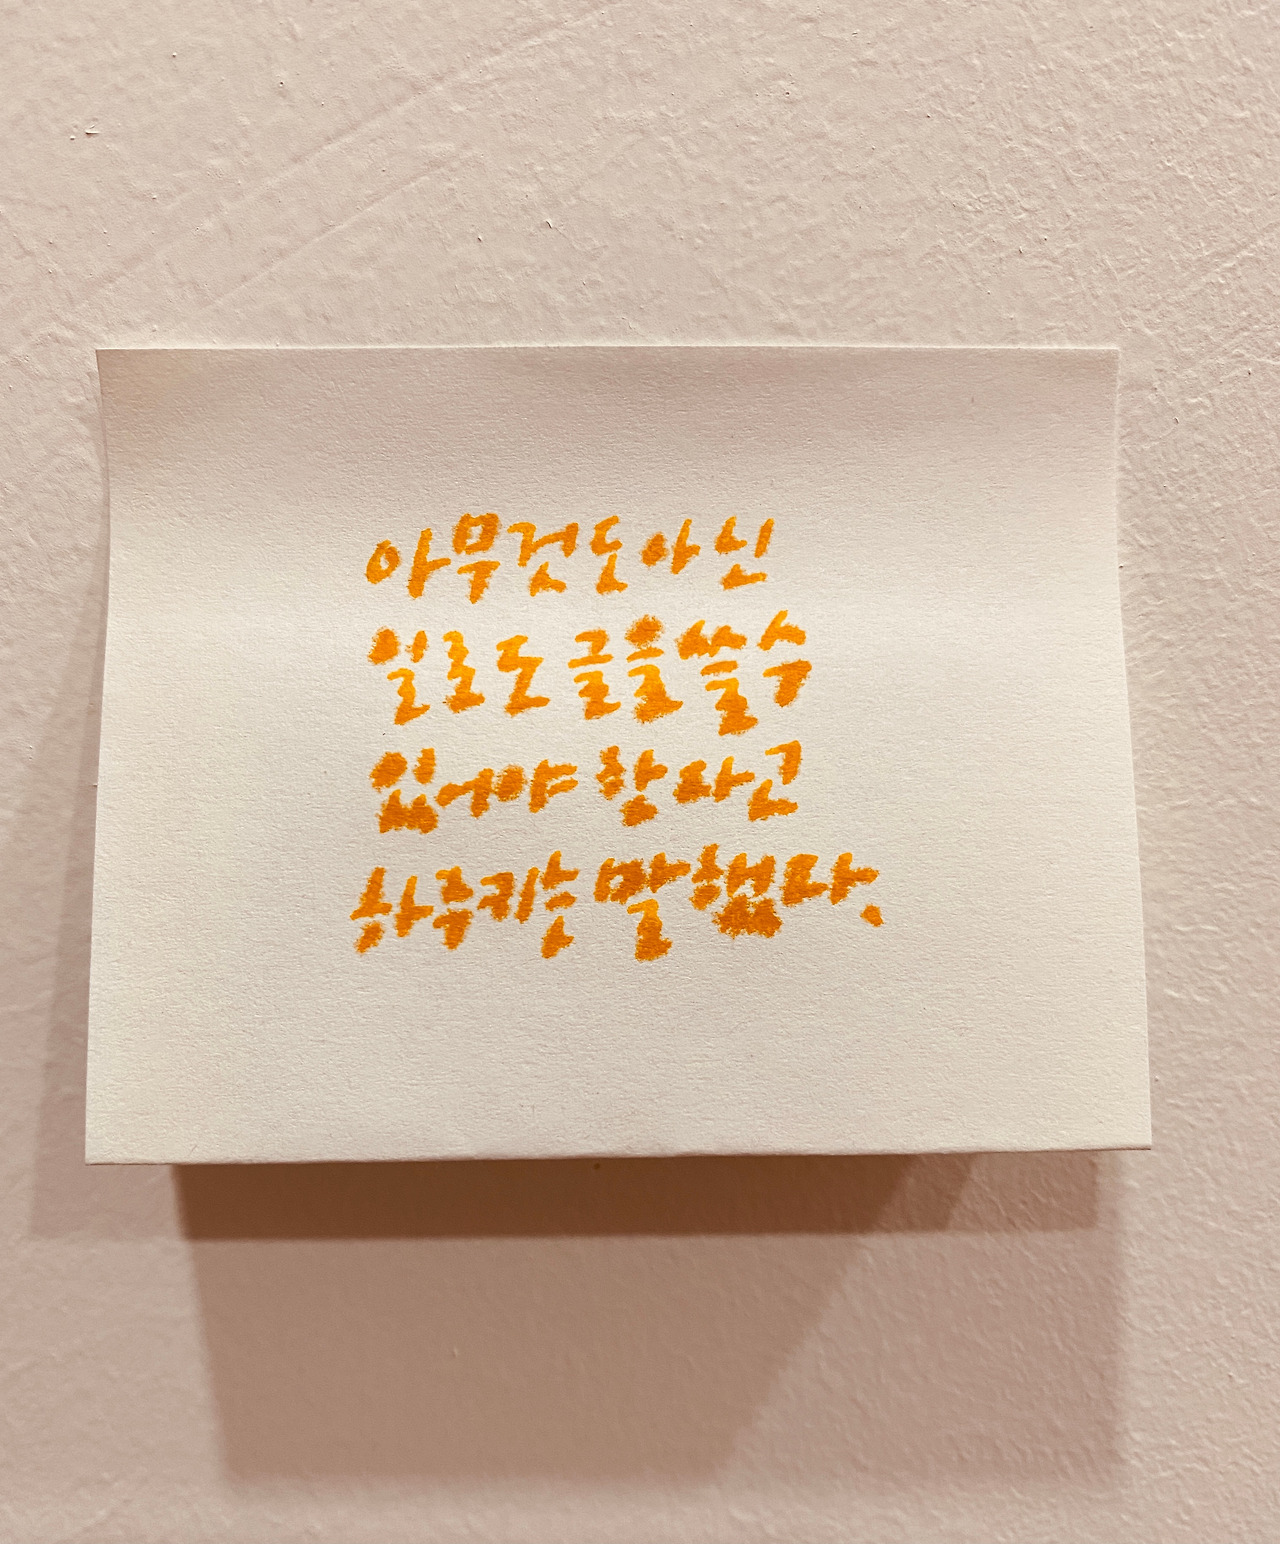 아무것도아닌
일로도 글을 쓸 수
있어야 한다고
하루키는 말했다.